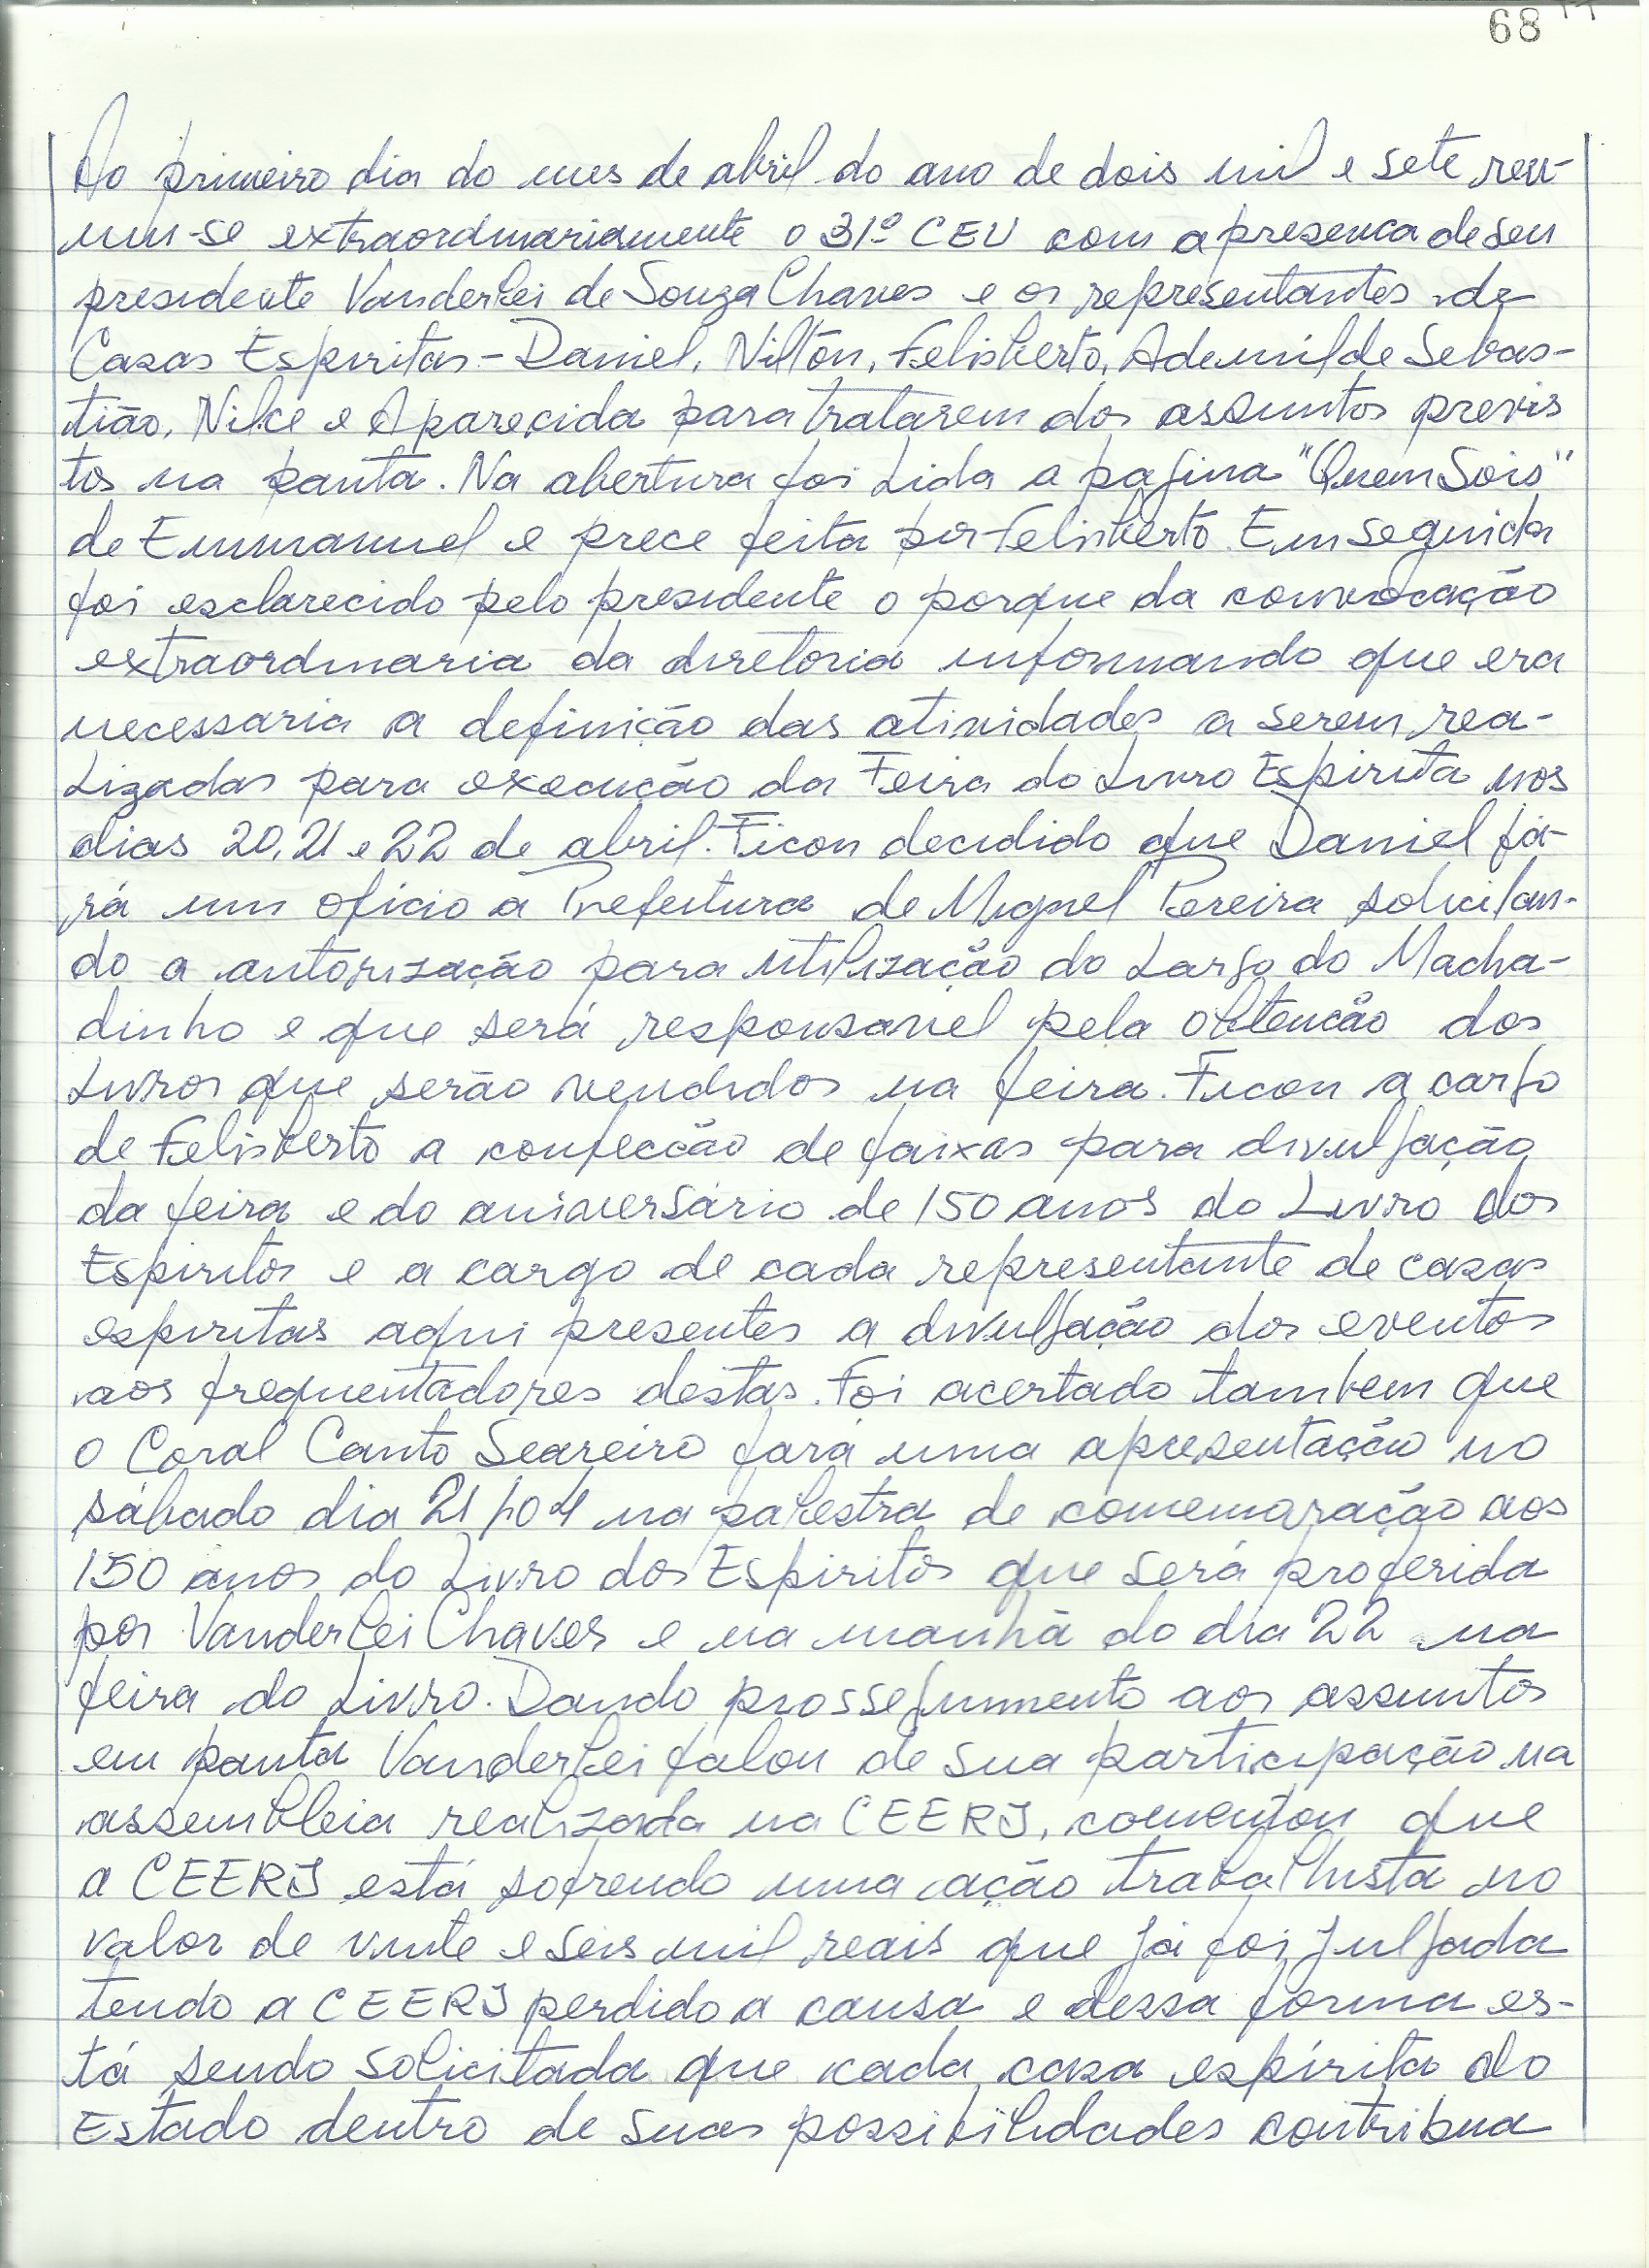 68
Ao primeiro dia do mes de abril do ano de dois mil e sete reu-
niu-se extraordinariamente o 31º CEU com a presenca de seu
presidente Vanderlei de Souza Chaves e os representantes de
Casas Espiritas - Daniel, Nilton, Felisberto, Ademilde Sebas-
tião, Nilce e Aparecida para tratarem dos assuntos previs
tos na pauta. Na abertura foi lida a pagina "Quem Sois"
de Emmanuel e prece feita por Felisberto. Em seguida
foi esclarecido pelo presidente o porque da convocação
extraordinaria da diretoria informando que era
necessaria a definição das atividades a serem rea-
lizadas para execução da Feira do Livro Espirita nos
dias 20, 21 e 22 de abril. Ficou decidido que Daniel fa-
rá um ofício a Prefeitura de Miguel Pereira solicitan-
do a autorização para utilização do Largo do Macha-
dinho e que será responsavel pela obtencão dos
livros que serão vendidos na feira. Ficou a cargo
de Felisberto a confeccão de faixas para divulgação
da feira e do aniversário de 150 anos do Livro dos
Espiritos e a cargo de cada representante de casas
espiritas aqui presentes a divulgação dos eventos
aos frequentadores destas. Foi acertado tambem que
o Coral Canto Seareiro fara uma apresentação no
sábado dia 21/04 na palestra de comemoração aos
150 anos do Livro dos Espiritos que será proferida
por Vanderlei Chaves e na manhã do dia 22 na
feira do Livro. Dando prosseguimento aos assuntos
em pauta Vanderlei falou de sua participação na
assembleia realizada na CEERJ, comentou que
a CEERJ está sofrendo uma ação trabalhista no
valor de vinte e seis mil reais que já foi julgada
tendo a CEERJ perdido a causa e dessa forma es-
tá sendo solicitada que cada casa espírita do
Estado dentro de suas possibilidades contribua